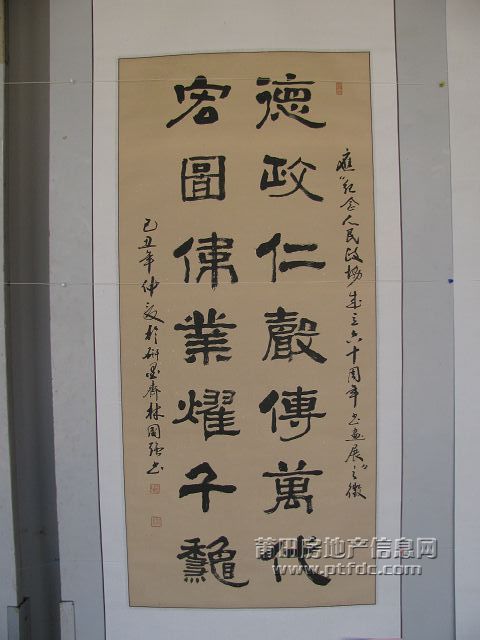 應纪念人民政協成立六十周年书画展之徵
德政仁聲傳萬代
宏圖偉業耀千龝
己丑年仲夏於研墨齋林国强书
莆田房地产信息网
www.ptfdc.com